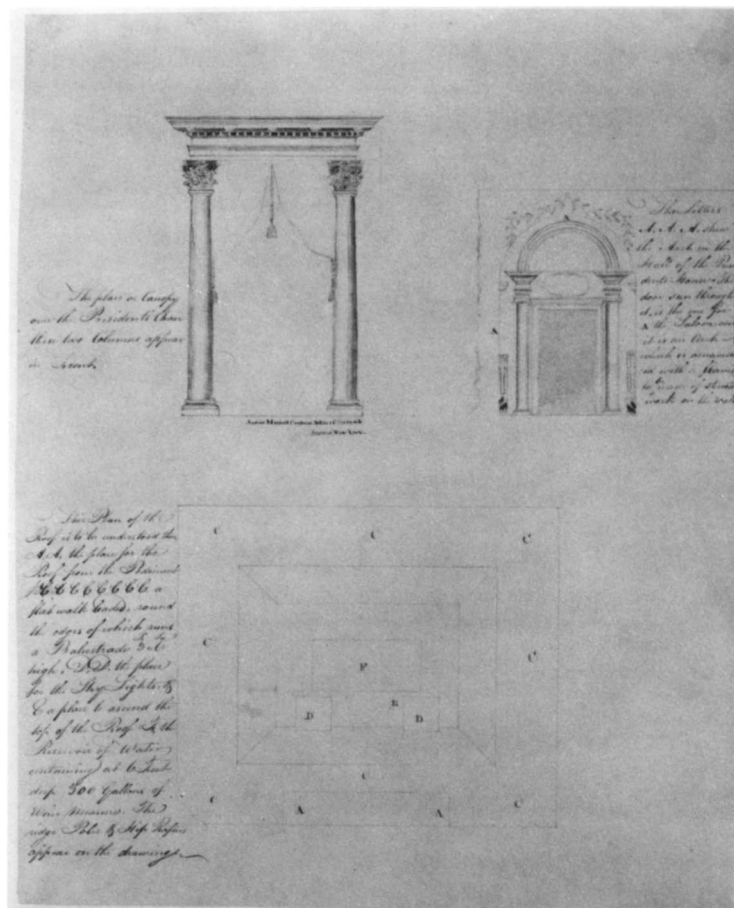 The place or Canopy
over the Presidents Chair
thier two Columns appear
in Front
The letters
A. A. A. shew
the Arch in the
Hall of the Presi
dents House The
door seen through
it, is the one for
the Saloon over
it is an Arch
which is
ed with a
work on the wall
A
A
The Plan of the
Roof is to be understood thus
A.A. the place for the
Roof from the Pediment
C C C C C C C a
flat walk leaded, round
the edges of which runs
a Balustrade
high. D.D. the place
for the Sky Lights, &
E a place to ascend the
top of the Roof F the
Reservoir of Water
containing at 6 Feet
deep 300 Gallons of
Wine measure. The
ridge Poles & Hip Rafters
appear on the drawing
C
C
C
C
C
F
B
D
D
C
C
A
A
C